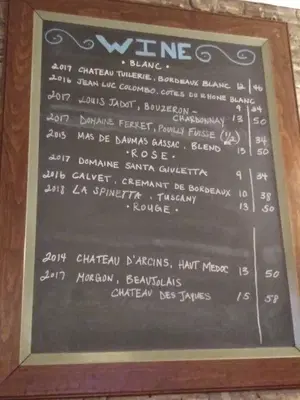 WINE
• BLANC •
2017 CHATEAU TUILERIE, BORDEAUX BLANC 12 46
2016 JEAN LUC COLOMBO, COTES DU RHONE BLANC 9 34
2017 LOUIS JADOT, BOUZERON - CHARDONNAY 13 50
2017 DOMAINE FERRET, POUILLY FUISSE (1/2) 34
2015 MAS DE DAUMAS GASSAC, BLEND 13 50
• ROSE •
2017 DOMAINE SANTA GIULETTA 9 34
2016 CALVET, CREMANT DE BORDEAUX 10 38
2018 LA SPINETTA, TUSCANY 13 50
• ROUGE •
2014 CHATEAU D'ARCINS, HAUT MEDOC 13 50
2017 MORGON, BEAUJOLAIS
CHATEAU DES JAQUES 15 58